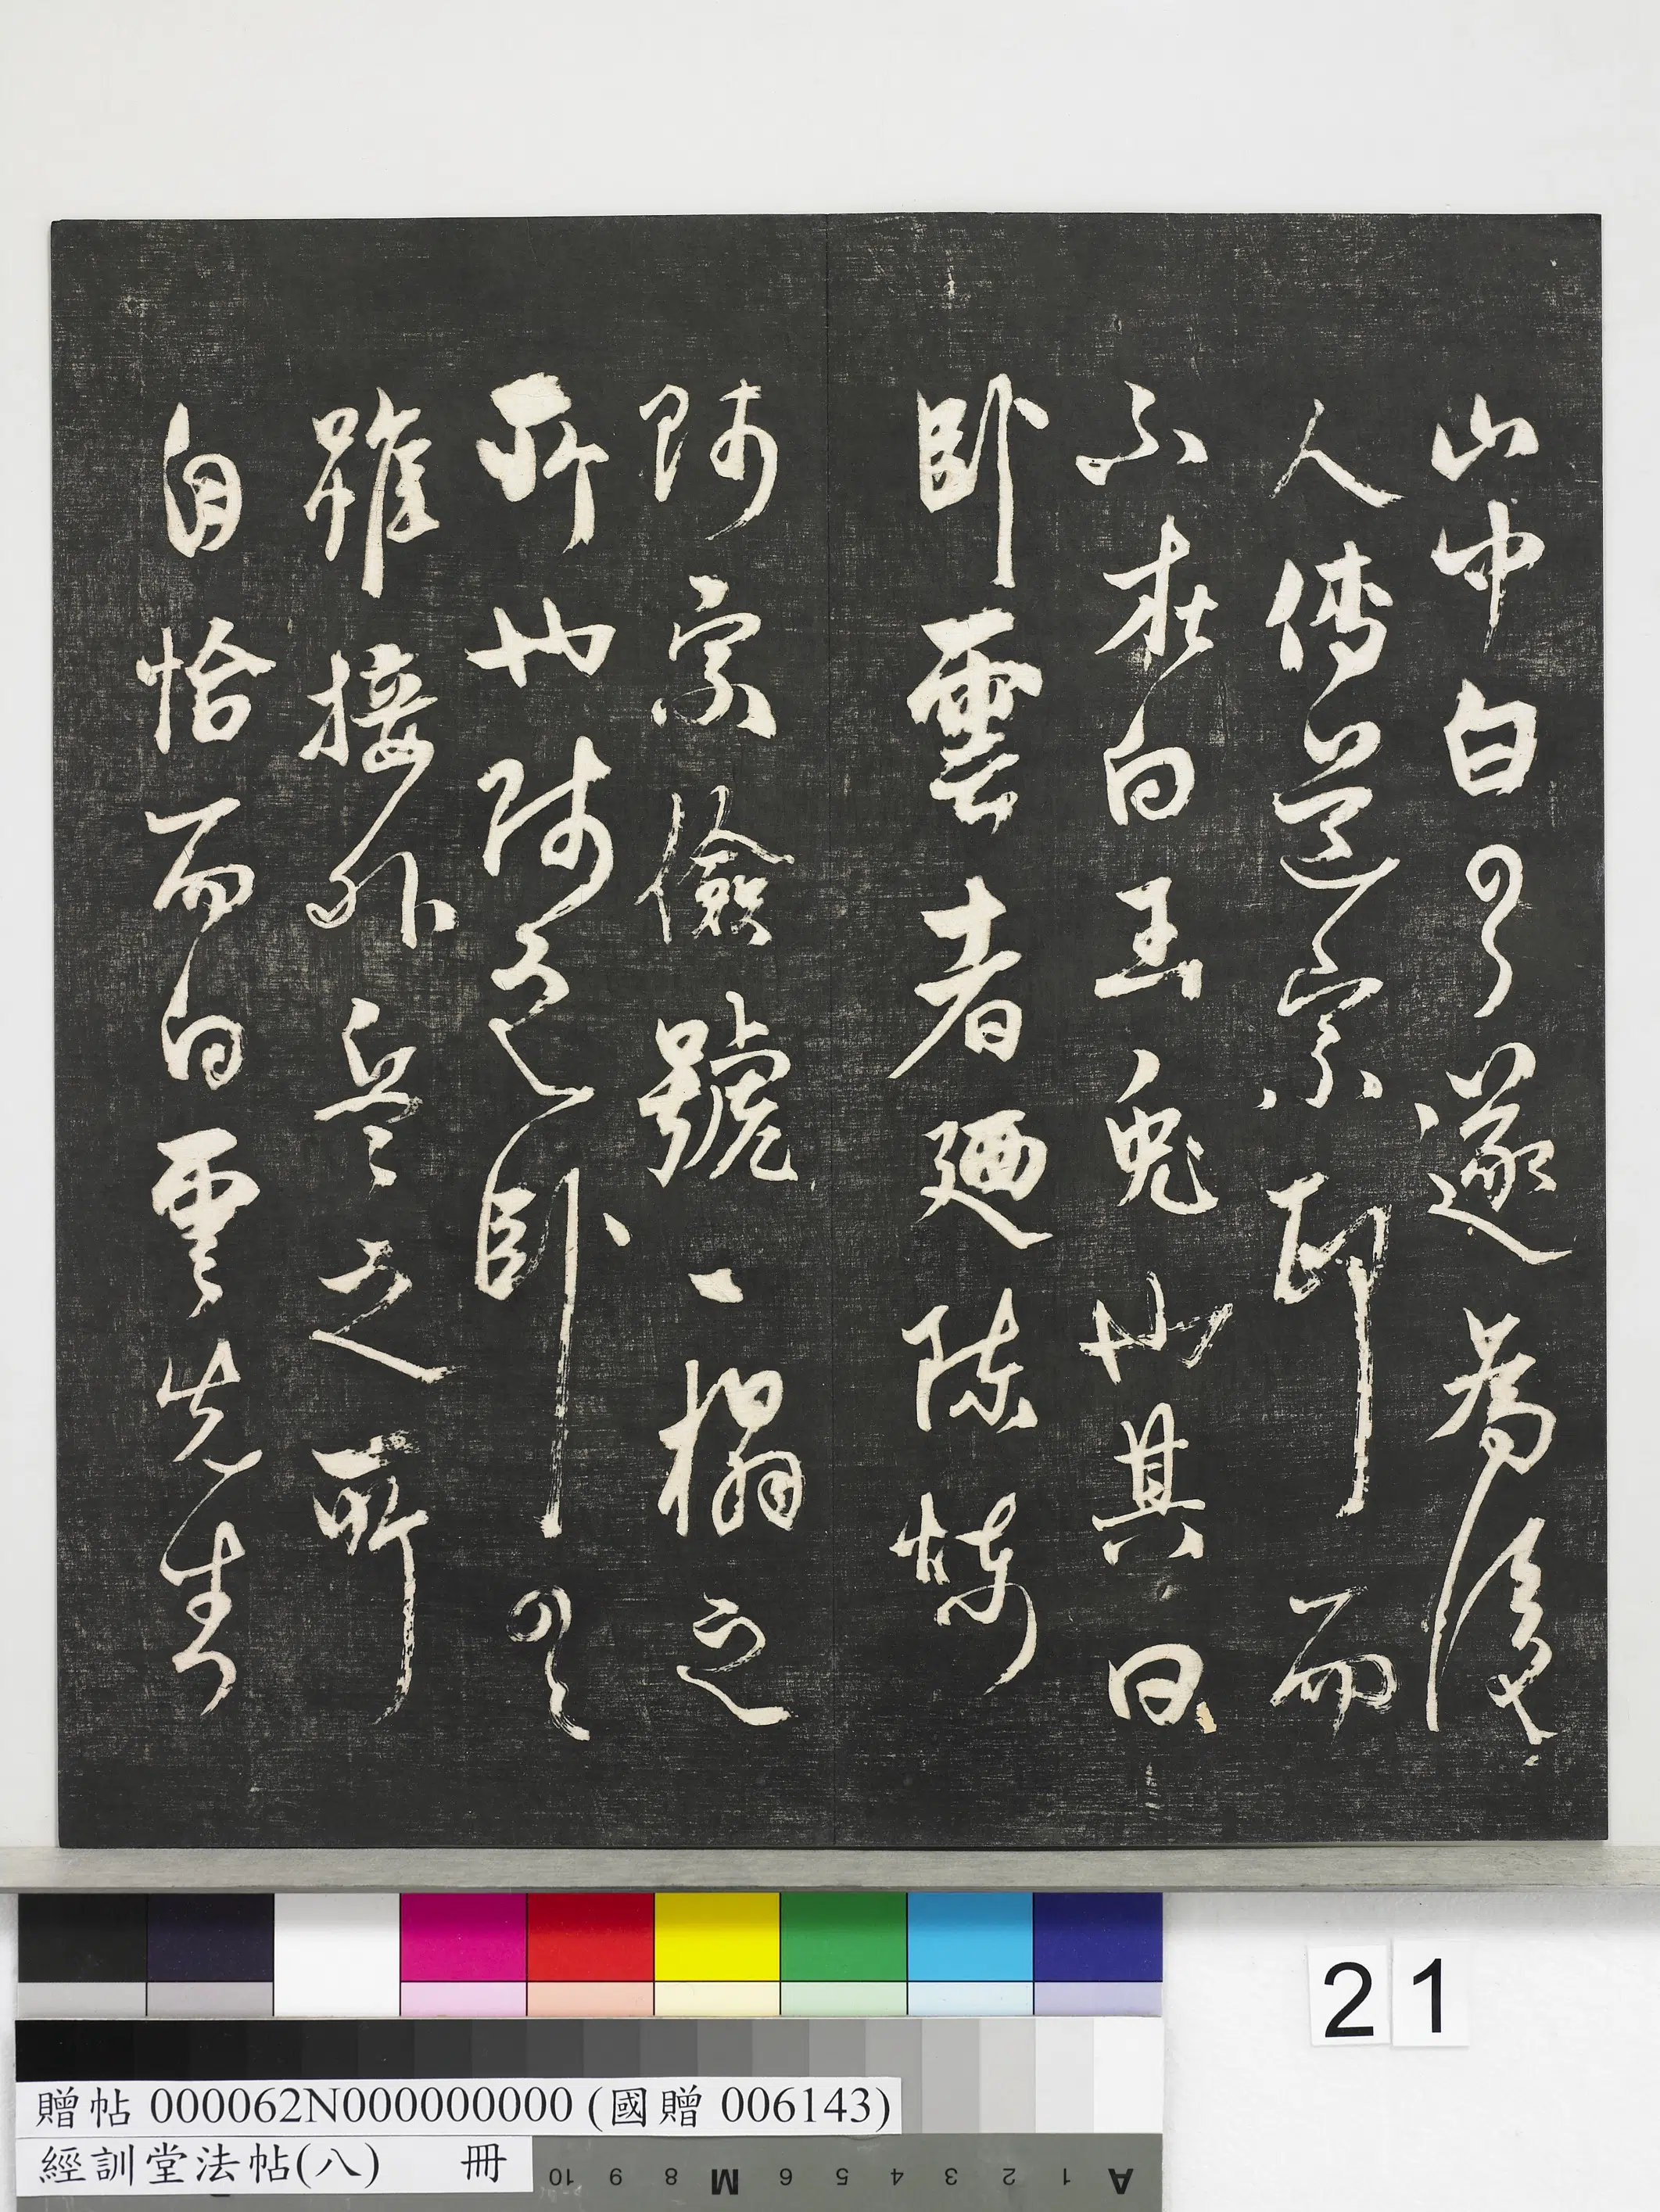 山中白雲遂為後
人傳道宗而
不在白玉兔也其曰
卧雲者廼陳煉
師宗儉號一榻之
所也師之卧雲
雖接之所
自怡而白雲先生
21
贈帖 000062N000000000 (國贈 006143)
經訓堂法帖(八) 冊
10 9 8 M 6 5 4 3 2 1 A